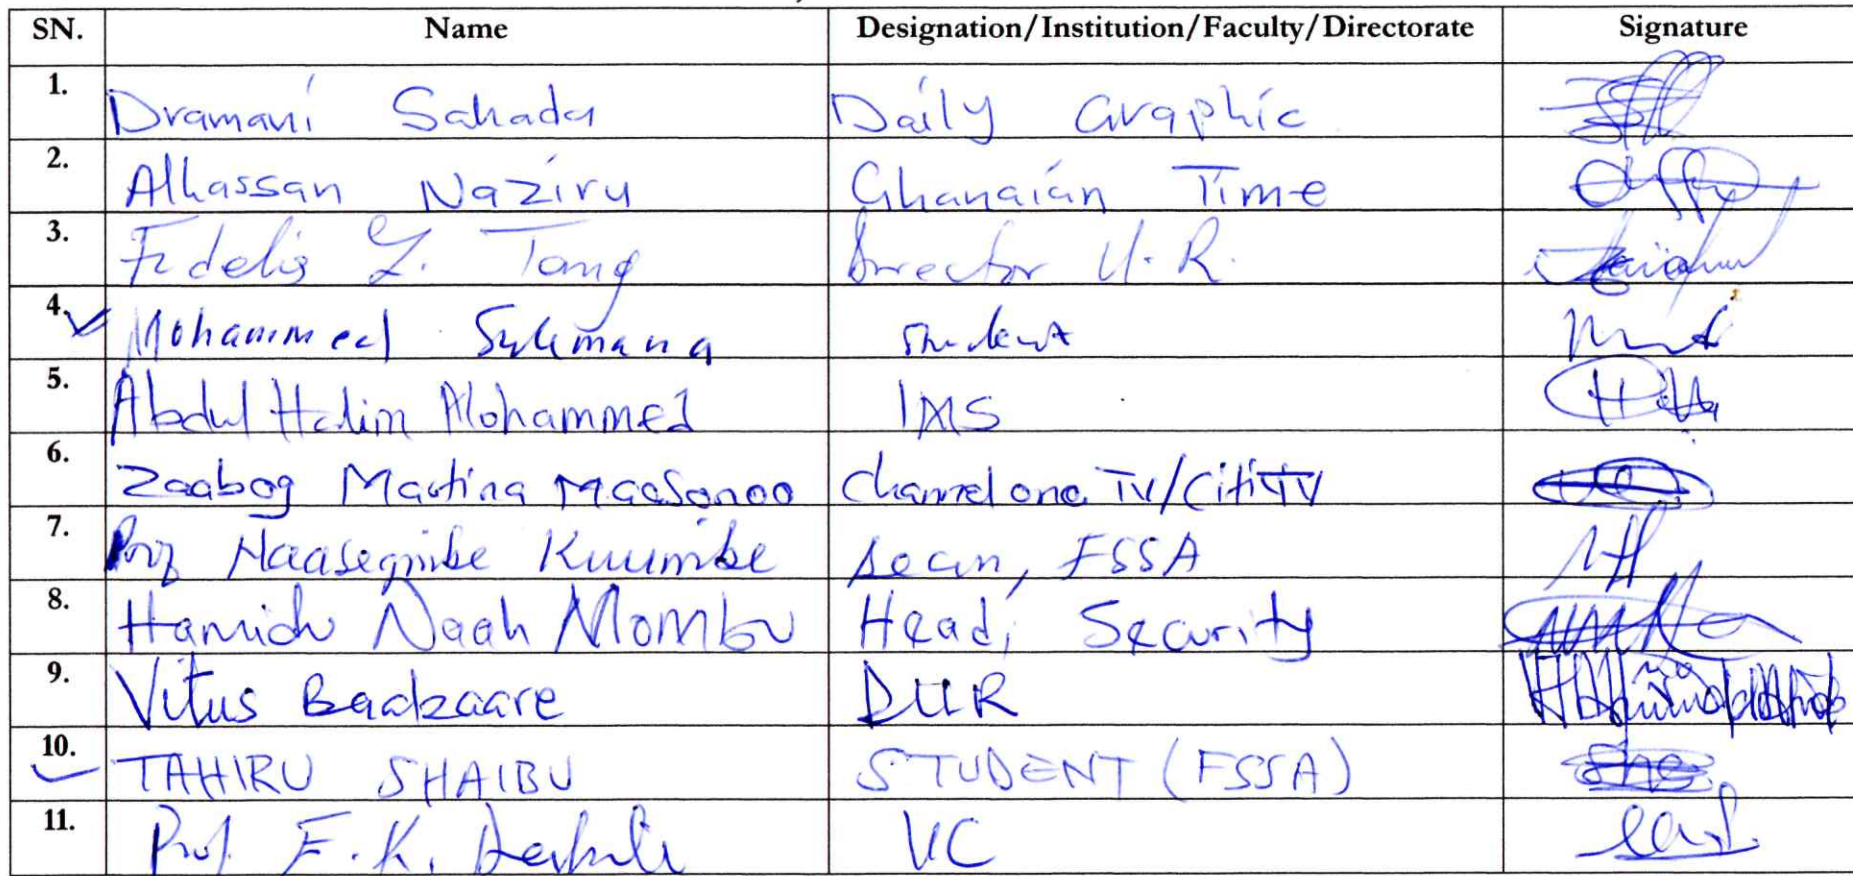 SN. Name Designation/Institution/Faculty/Directorate Signature
1. Dramani Sahada Daily Graphic
2. Alhassan Naziru Ghanaian Time
3. Fidelis Z. Tang Director U.R.
4. Mohammed Sulemana student
5. Abdul Halim Mohammed IMS
6. Zaabog Martina Maasonoo Channel one TV/Citi TV
7. Prof Kuumibe Dean, FSSA
8. Hamidu Naah Mombu Head, Security
9. Vitus Baabzaare DUR
10. TAHIRU SHAIBU STUDENT (FSSA)
11. Prof. E.K. Derbile VC